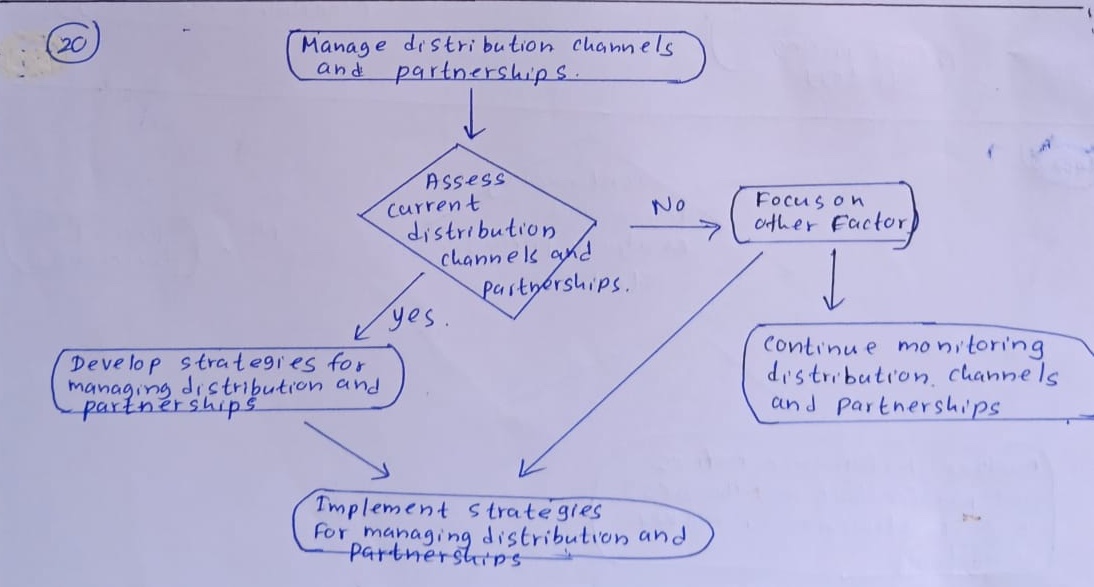 20
Manage distribution channels
and partnerships.
Assess
current
distribution
channels and
partnerships.
No
Focus on
other Factor
yes.
Develop strategies for
managing distribution and
partnerships
continue monitoring
distribution channels
and partnerships
Implement strategies
for managing distribution and
partnerships